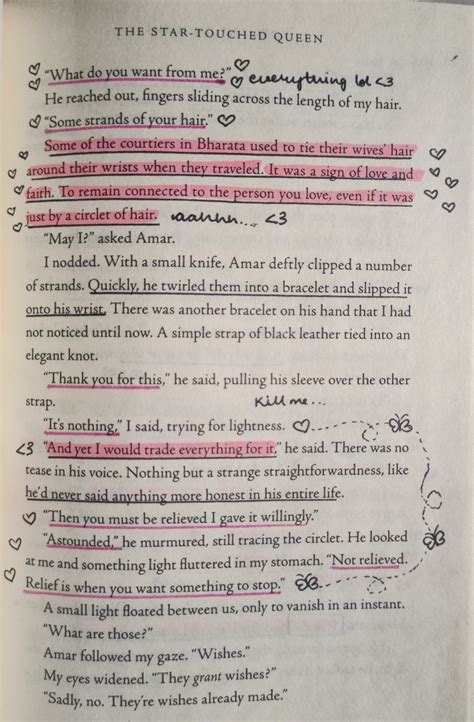 THE STAR-TOUCHED QUEEN
"What do you want from me?" everything lol <3
He reached out, fingers sliding across the length of my hair.
"Some strands of your hair."
Some of the courtiers in Bharata used to tie their wives' hair
around their wrists when they traveled. It was a sign of love and
faith. To remain connected to the person you love, even if it was
just by a circlet of hair. aahhhn... <3
"May I?" asked Amar.
I nodded. With a small knife, Amar deftly clipped a number
of strands. Quickly, he twirled them into a bracelet and slipped it
onto his wrist. There was another bracelet on his hand that I had
not noticed until now. A simple strap of black leather tied into an
elegant knot.
"Thank you for this," he said, pulling his sleeve over the other
strap. Kill me...
"It's nothing," I said, trying for lightness.
<3 "And yet I would trade everything for it," he said. There was no
tease in his voice. Nothing but a strange straightforwardness, like
he'd never said anything more honest in his entire life.
"Then you must be relieved I gave it willingly."
"Astounded," he murmured, still tracing the circlet. He looked
at me and something light fluttered in my stomach. "Not relieved.
Relief is when you want something to stop."
A small light floated between us, only to vanish in an instant.
"What are those?"
Amar followed my gaze. "Wishes."
My eyes widened. "They grant wishes?"
"Sadly, no. They're wishes already made."